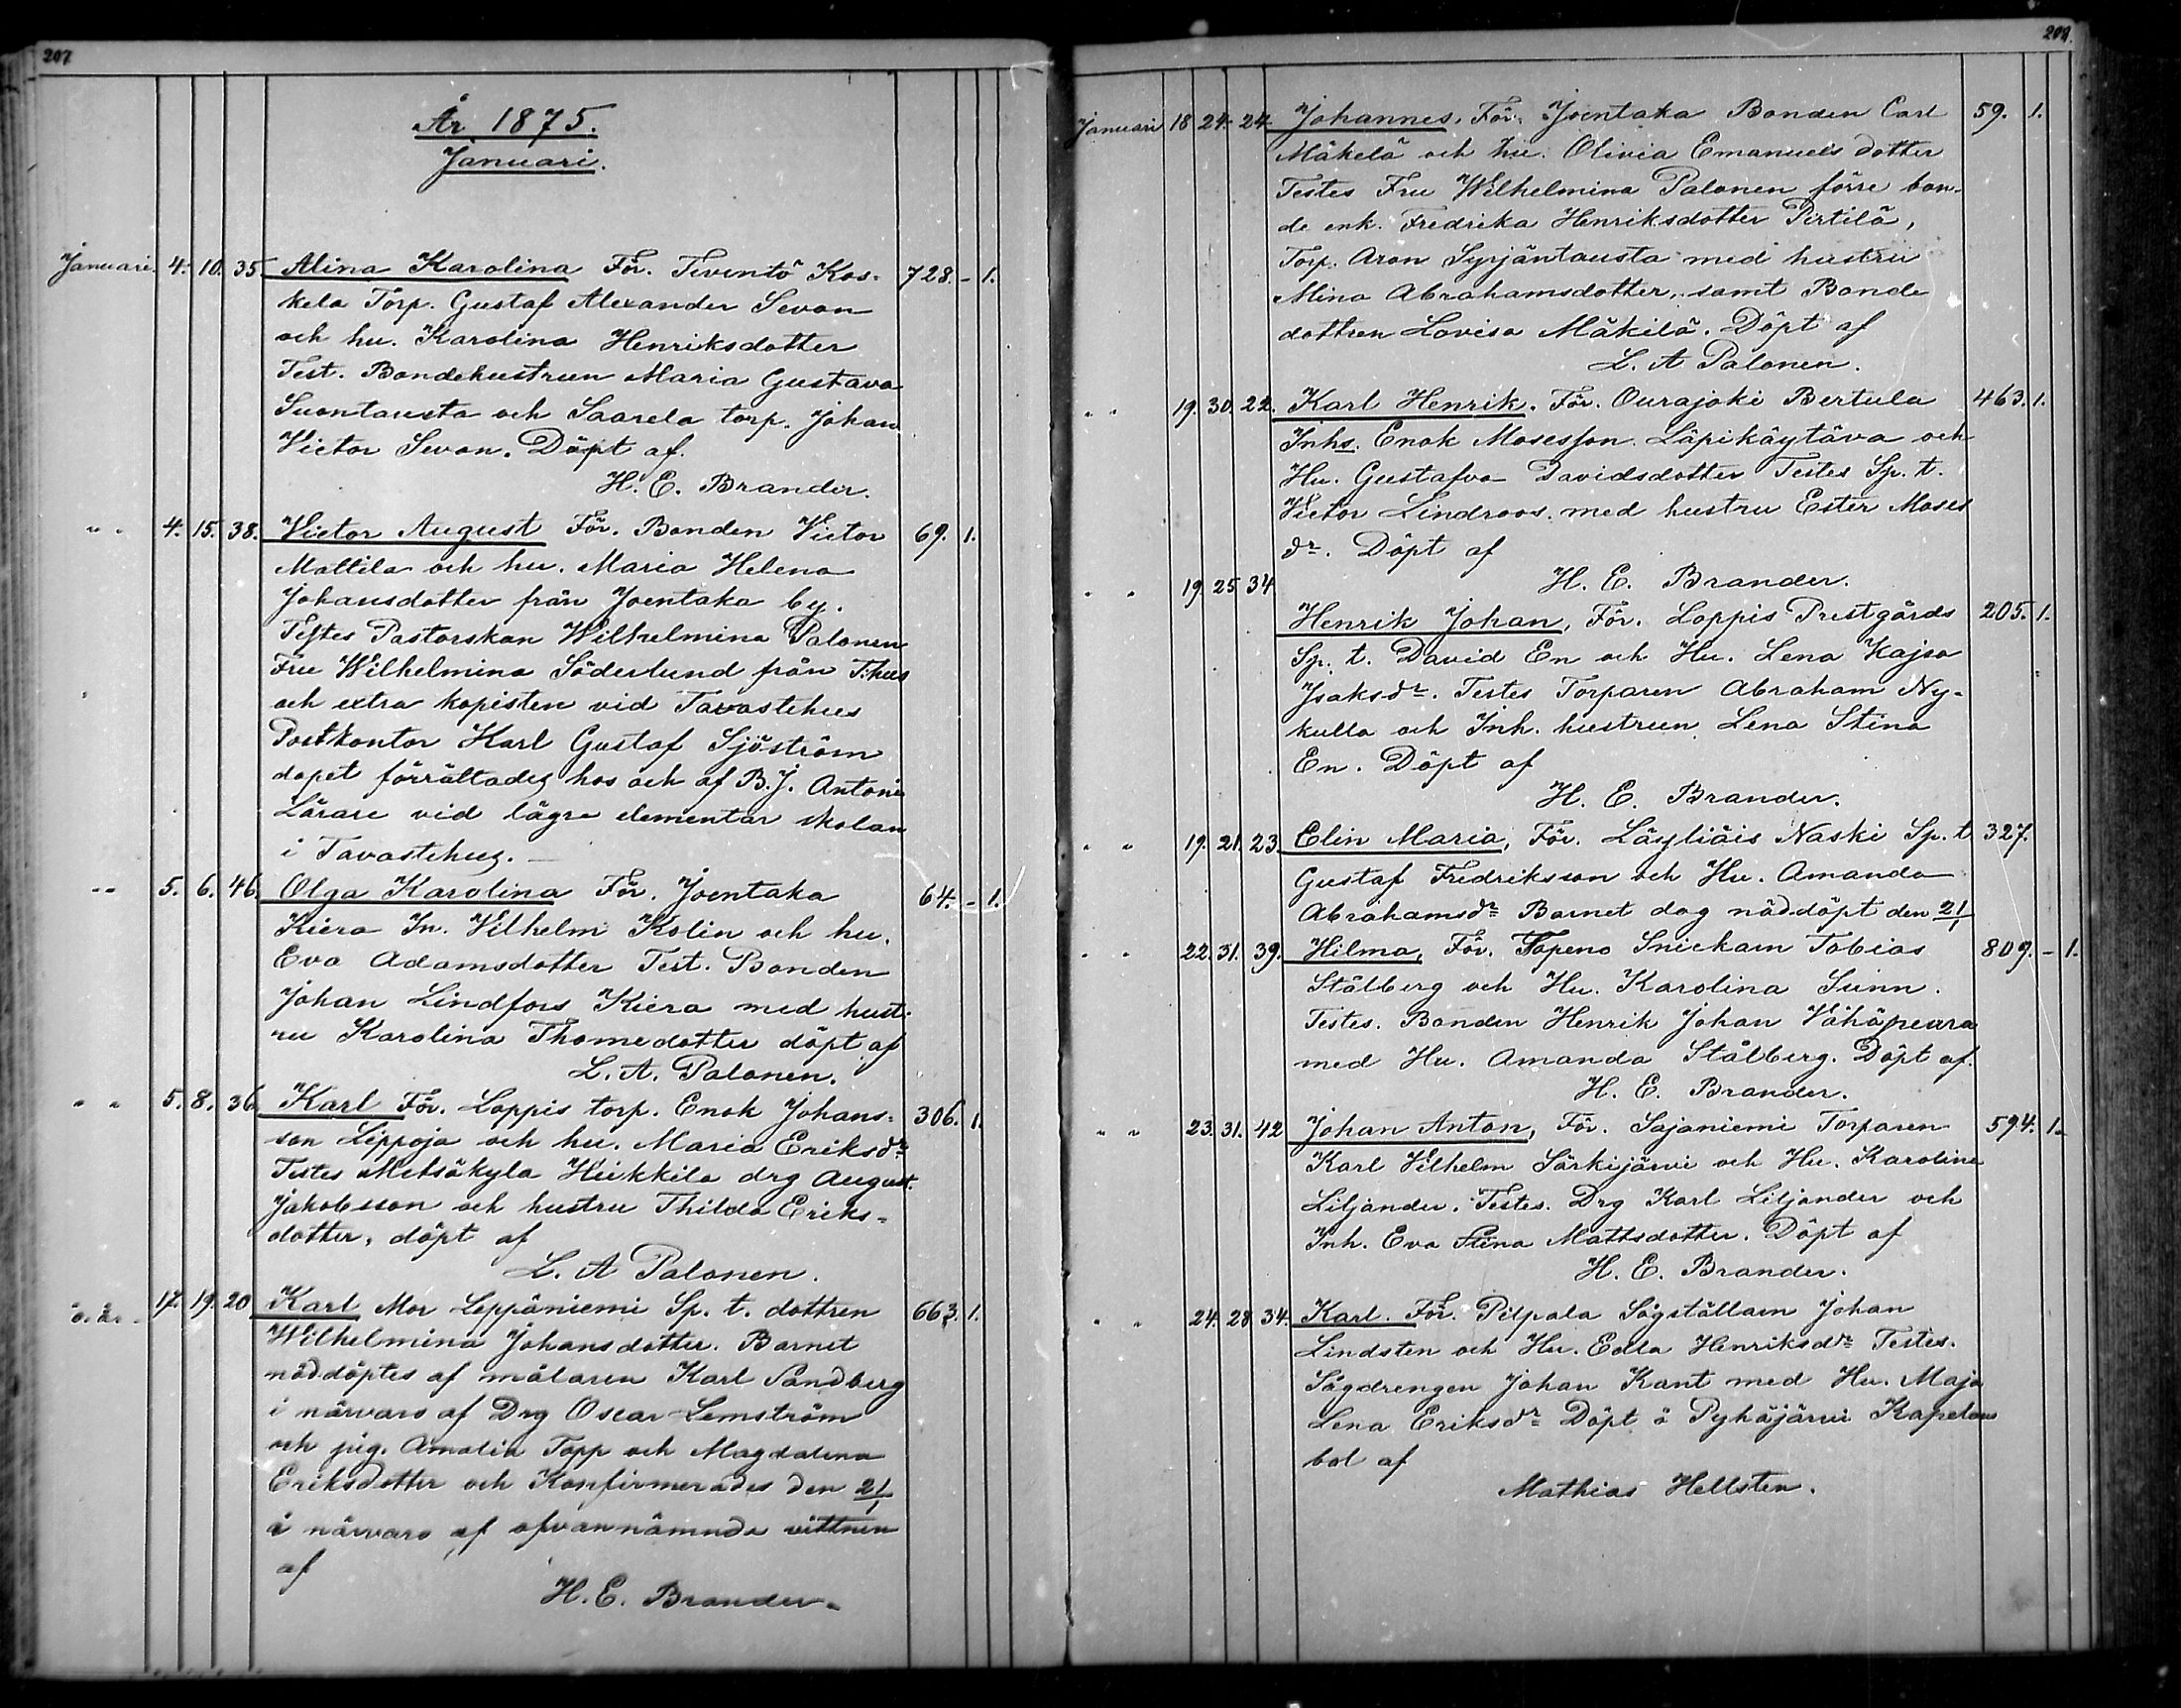 207
År 1875.
Januari.
Januari. 4. 10. 35. Alina Karolina För. Teventö Kos- 728. - 1.
kela Torp. Gustaf Alexander Sevon
och hu. Karolina Henriksdotter
Test. Bondehustrun Maria Gustava
Suontausta och Saarela torp. Johan
Victor Sevon. Döpt af.
H. E. Brander.
" " 4. 15. 38. Victor August För. Bonden Victor 69. 1.
Mattila och hu. Maria Helena
Johansdotter från Joentaka by.
Testes Pastorskan Wilhelmina Palonen
Fru Wilhelmina Söderlund från T:hus
och extra kopisten vid Tavastehus
Postkontor Karl Gustaf Sjöström
dopet förrättades hos och af B. J. Antoni
Lärare vid lägre elementar skolan
i Tavastehus.
" " 5. 6. 46. Olga Karolina För. Joentaka 64. - 1.
Kiera In. Vilhelm Kolin och hu.
Eva Adamsdotter Test. Bonden
Johan Lindfors Kiera med hust-
ru Karolina Thomedotter döpt af
L. A. Palonen.
" " 5. 8. 36. Karl För. Loppis torp. Enok Johans- 306. 1.
son Lippoja och hu. Maria Eriksdr
Testes Metsäkyla Heikkila drg August.
Jakobsson och hustru Thilda Eriks-
dotter, döpt af
L. A Palonen.
17. 19. 20 Karl Mor Leppäniemi Sp. t. dottren 663. 1.
Wilhelmina Johansdotter. Barnet
nöddöptes af målaren Karl Sandberg
i närvaro af Drg Oscar Lemström
och pig. Amalia Topp och Magdalena
Eriksdotter och Konfirmerades den 21/1
i närvaro af ofvannämnda vittnen
af
H. E. Brander.
209.
Januari 18 24. 24. Johannes, För. Joentaka Bonden Carl 59. 1.
Mäkelä och hu. Olivia Emanuels dotter
Testes Fru Wilhelmina Palonen förre bon-
de enk. Fredrika Henriksdotter Pirtilä,
Torp. Aron Syrjäntausta med hustru
Mina Abrahamsdotter, samt Bonde
dottren Lovisa Mäkilä. Döpt af
L. A Palonen.
" " 19. 30. 22. Karl Henrik. För. Ourajoki Bertula 463. 1.
Inhs. Enok Mosesson Läpikäytävä och
Hu. Gustafva Davidsdotter Testes Sp. t.
Victor Lindroos. med hustru Ester Moses
dr. Döpt af
H. E. Brander.
" " 19. 25 34. Henrik Johan, För. Loppis Prestgårds 205. 1.
Sp. t. David En och Hu. Lena Kajsa
Isaksdr. Testes Torparen Abraham Ny-
kulla och Inh. hustrun Lena Stina
En. Döpt af
H. E. Brander.
" " 19. 21. 23. Elin Maria, För. Läyliäis Naski Sp. t 327.
Gustaf Fredriksson och Hu. Amanda
Abrahamsdr Barnet dog nöddöpt den 21/1
" " 22. 31. 39. Hilma, För. Topeno Snickarn Tobias 809. - 1.
Stålberg och Hu. Karolina Sunn.
Testes. Bonden Henrik Johan Vähäpeura
med Hu. Amanda Stålberg. Döpt af.
H. E. Brander.
" " 23. 31. 42 Johan Anton, För. Sajaniemi Torparen 594. 1.
Karl Vilhelm Särkijärvi och Hu. Karolina
Liljander. Testes. Drg Karl Liljander och
Inh. Eva Stina Mattsdotter. Döpt af
H. E. Brander.
" " 24. 28. 34. Karl. För. Pilpala Sågställarn Johan
Lindsten och Hu. Edla Henriksdr Testes.
Sågdrengen Johan Kant med Hu. Maja
Lena Eriksdr Döpt å Pyhäjärvi Kapelans
bol af
Mathias Hellsten.